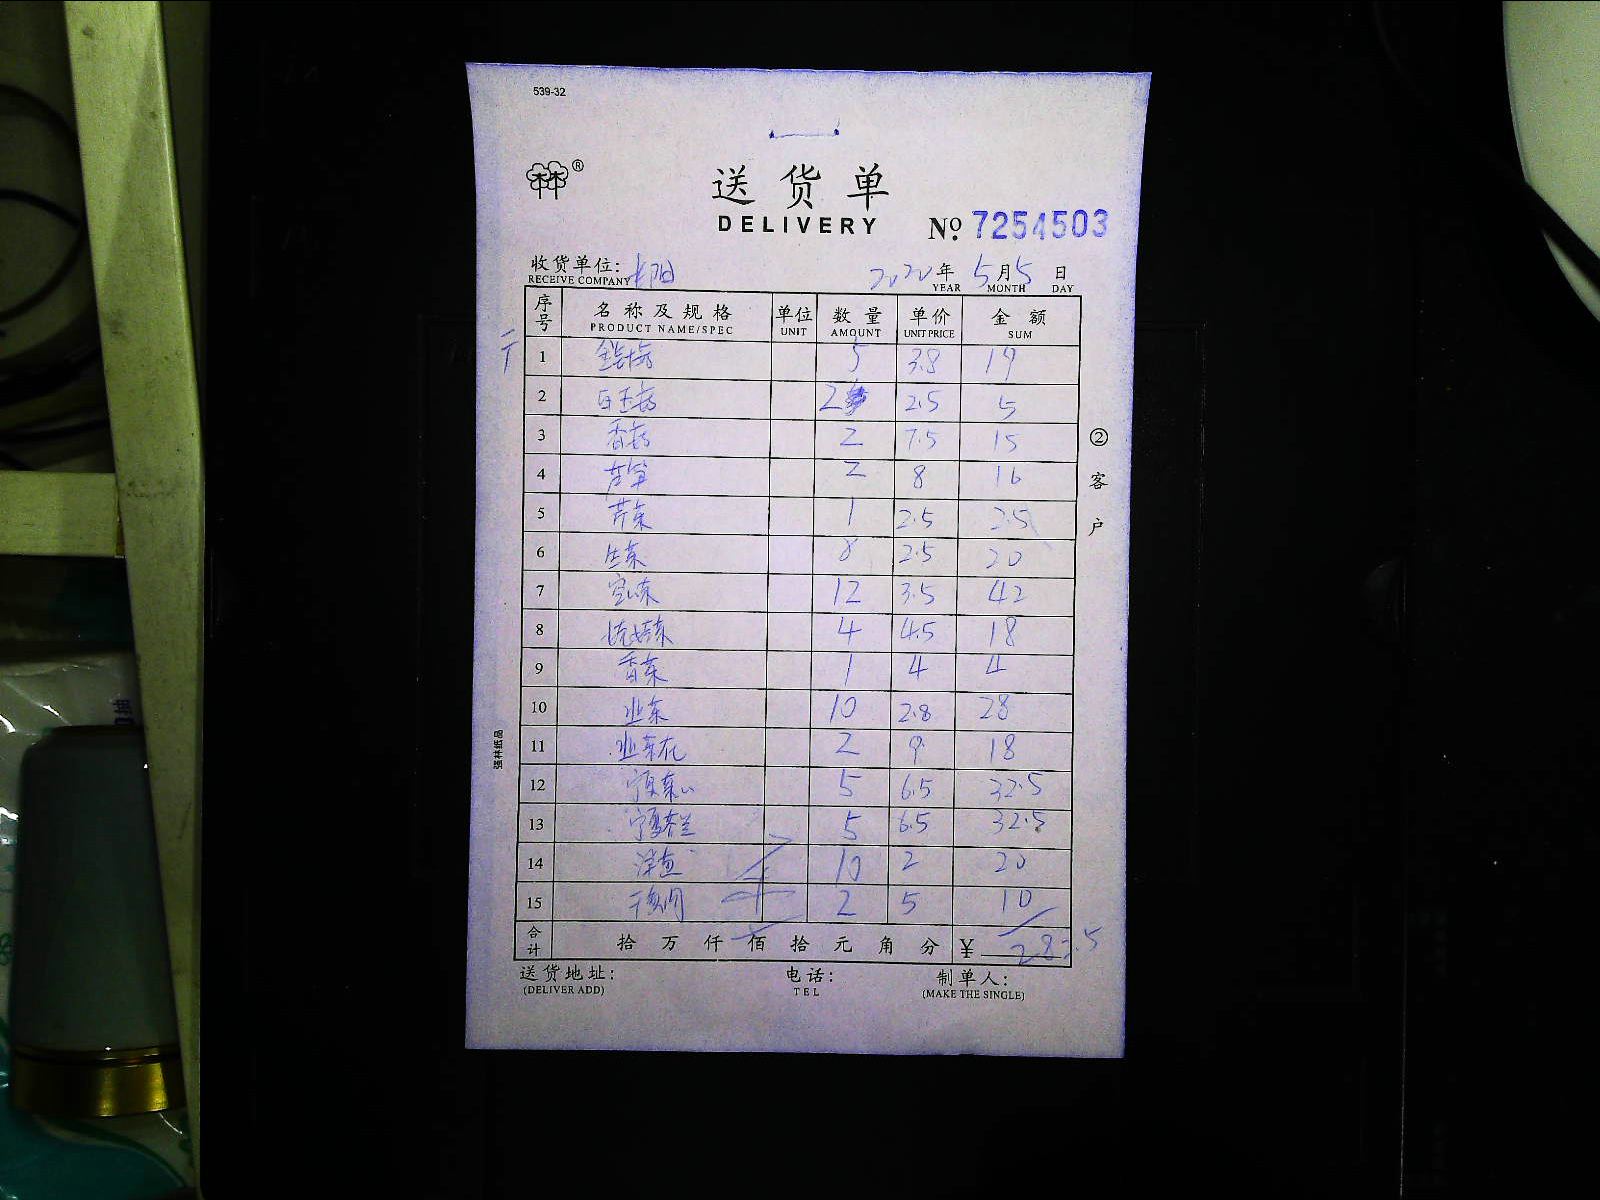 539-32
®
送货单
DELIVERY
№ 7254503
收货单位: 长阳
RECEIVE COMPANY
2020 年 5 月 5 日
YEAR MONTH DAY
序号 名称及规格 单位 数量 单价 金额
PRODUCT NAME/SPEC UNIT AMOUNT UNIT PRICE SUM
1 5 3.8 19
2 白玉菇 2 2.5 5
3 香菇 2 7.5 15
4 2 8 16
5 芹菜 1 2.5 2.5
6 生菜 8 2.5 20
7 12 3.5 42
8 4 4.5 18
9 香菜 1 4 4
10 韭菜 10 2.8 28
11 韭菜花 2 9 18
12 宁夏菜心 5 6.5 32.5
13 宁夏芥兰 5 6.5 32.5
14 洋鱼 10 2 20
15 2 5 10
合计 拾 万 仟 佰 拾 元 角 分 ¥ 282.5
送货地址: 电话: 制单人:
(DELIVER ADD) TEL (MAKE THE SINGLE)
② 客户
强林纸品